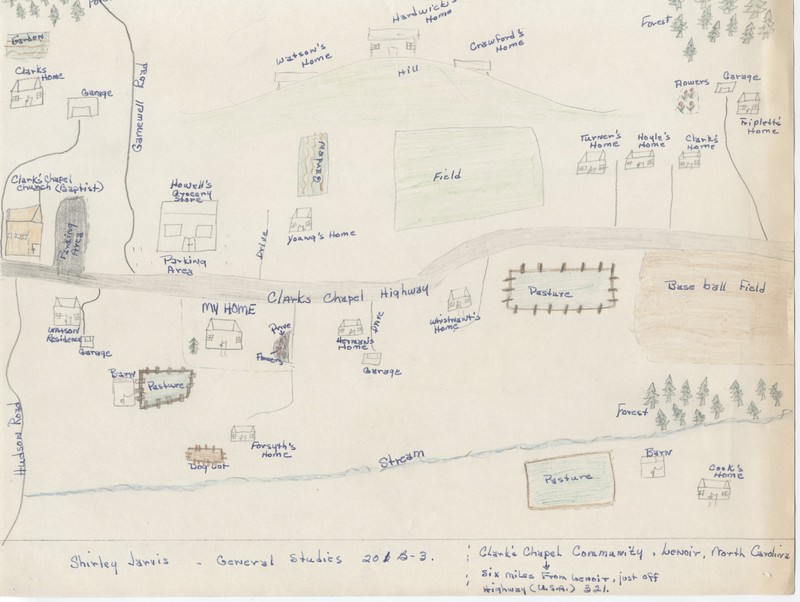 Hardwick's
Home
Forest
Watson's
Home
Crawford's
Home
Hill
Garden
Clarks
Home
Garage
Gamewell Road
Flowers
Garage
Triplett's
Home
Turner's
Home
Hoyle's
Home
Clark's
Home
Garden
Field
Clark's Chapel
Church (Baptist)
Parking
Area
Howell's
Grocery
Store
Parking
Area
Drive
Young's Home
Clarks Chapel Highway
Pasture
Base ball Field
Watson
Residence
Garage
MY HOME
Drive
Flowers
Herman's
Home
Drive
Garage
Whisnant's
Home
Barn
Pasture
Hudson Road
Forsyth's
Home
Dog Lot
Stream
Forest
Pasture
Barn
Cook's
Home
Shirley Jarvis - General Studies 201 S-3.
Clark's Chapel Community, Lenoir, North Carolina
Six miles From Lenoir, just off
Highway (U.S.A.) 321.